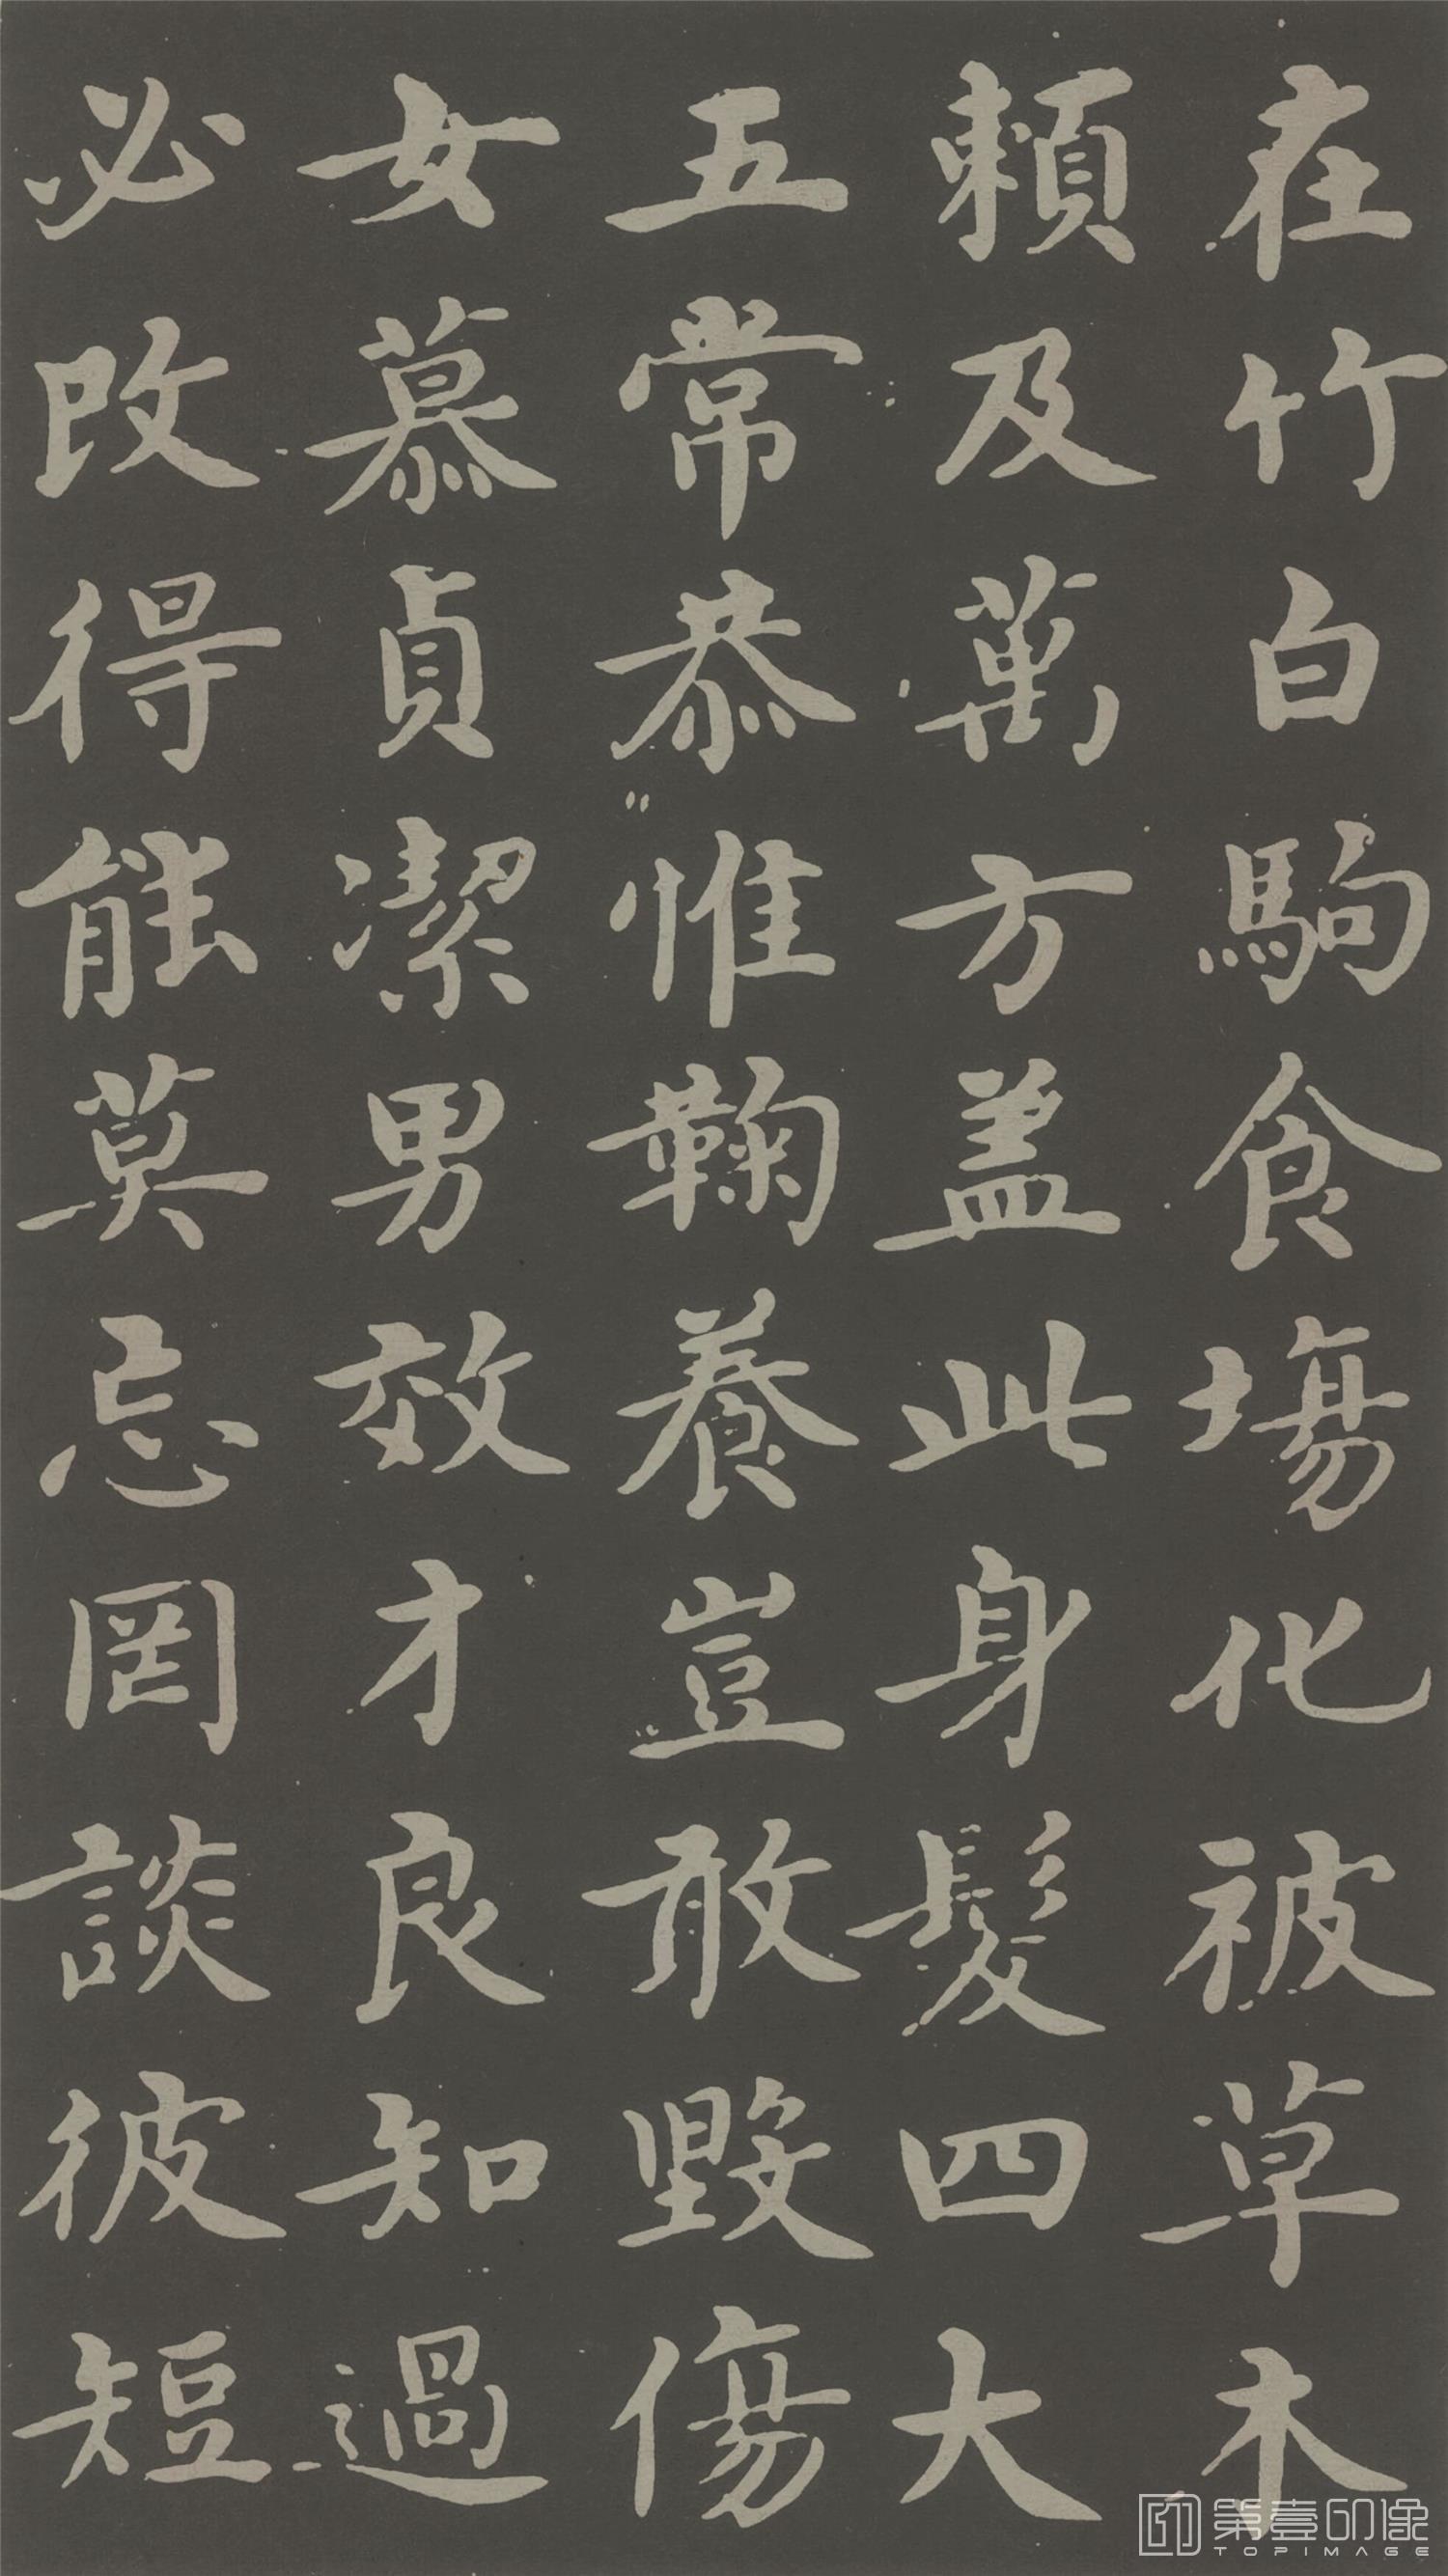 在竹白駒食塲化被草木
賴及萬方盖此身髮四大
五常恭惟鞠養豈敢毀傷
女慕貞潔男效才良知過
必改得能莫忘罔談彼短
第壹印像
TOPIMAGE